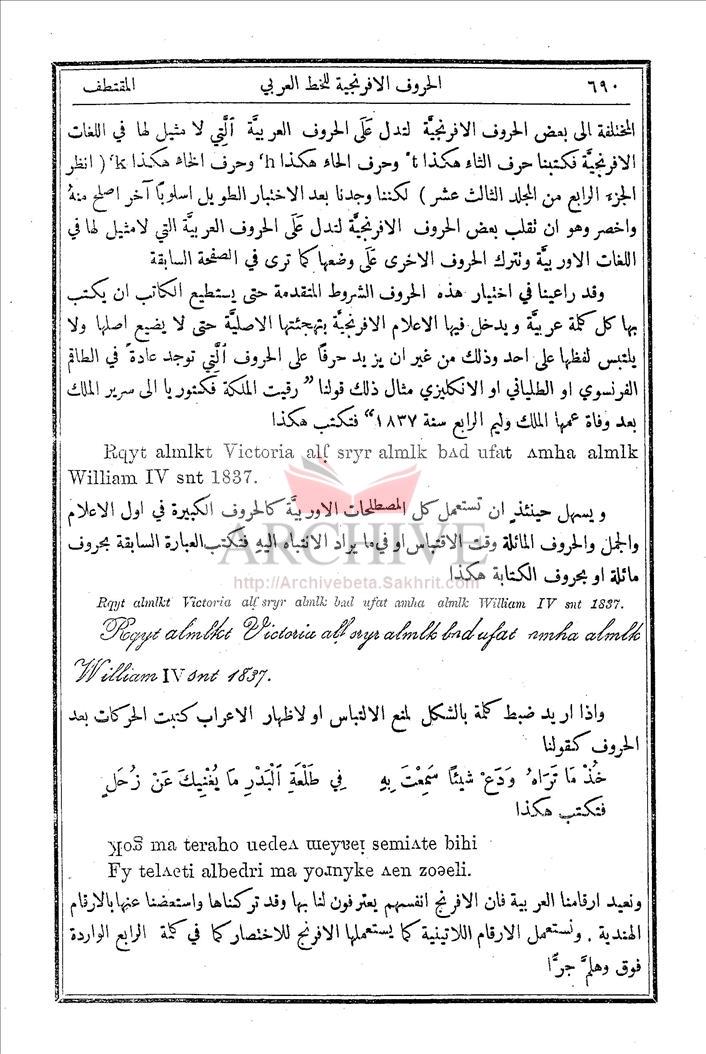 ٦٩٠ الحروف الافرنجية للخط العربي المقتطف
المختلفة الى بعض الحروف الافرنجيَّة لتدل عَلَى الحروف العربيَّة ٱلَّتِي لا مثيل لها في اللغات
الافرنجيَّة فكتبنا حرف الثاء هكذا t‘ وحرف الحاء هكذا h‘ وحرف الخاء هكذا k‘ ( انظر
الجزء الرابع من المجلد الثالث عشر ) لكننا وجدنا بعد الاختبار الطويل اسلوبًا آخر اصلح منهُ
واخصر وهو ان تقلب بعض الحروف الافرنجيَّة لتدل عَلَى الحروف العربيَّة التي لامثيل لها في
اللغات الاوربيَّة ونترك الحروف الاخرى عَلَى وضعها كما ترى في الصفحة السابقة
وقد راعينا في اختيار هذه الحروف الشروط المتقدمة حتى يستطيع الكاتب ان يكتب
بها كل كلمة عربية ويدخل فيها الاعلام الافرنجيَّة بتهجئتها الاصليَّة حتى لا يضيع اصلها ولا
يلتبس لفظها على احد وذلك من غير ان يزيد حرفًا على الحروف ٱلَّتِي توجد عادةً في الطاقم
الفرنسوي او الطلياني او الانكليزي مثال ذلك قولنا ” رقيت الملكة فكتوريا الى سرير الملك
بعد وفاة عمها الملك وليم الرابع سنة ١٨٣٧“ فتكتب هكذا
Rqyt almlkt Victoria alʃ sryr almlk bʌd ufat ʌmha almlk
William IV snt 1837.
ويسهل حينئذٍ ان تستعمل كل المصطلحات الاوربيَّة كالحروف الكبيرة في اول الاعلام
والجمل والحروف المائلة وقت الاقتباس او في ما يراد الانتباه اليهِ فتكتب العبارة السابقة بحروف
مائلة او بحروف الكتابة هكذا
ARCHIVE
http://Archivebeta.Sakhrit.com
Rqyt almlkt Victoria alʃ sryr almlk bʌd ufat ʌmha almlk William IV snt 1837.
Rqyt almlkt Victoria alʃ sryr almlk bʌd ufat ʌmha almlk
William IV snt 1837.
واذا اريد ضبط كلمة بالشكل لمنع الالتباس او لاظهار الاعراب كتبت الحركات بعد
الحروف كقولنا
خُذْ مَا تَرَاهُ وَدَعْ شيئًا سَمِعْتَ بِهِ فِي طَلْعَةِ ٱلْبَدْرِ مَا يُغْنِيكَ عَنْ زُحَلِ
فتكتب هكذا
ma teraho uedeʌ semiʌte bihi
Fy telʌeti albedri ma ʌen zoǝeli.
ونعيد ارقامنا العربية فان الافرنج انفسهم يعترفون لنا بها وقد تركناها واستعضنا عنها بالارقام
الهندية . ونستعمل الارقام اللاتينية كما يستعملها الافرنج للاختصار كما في كلمة الرابع الواردة
فوق وهلمَّ جرًّا